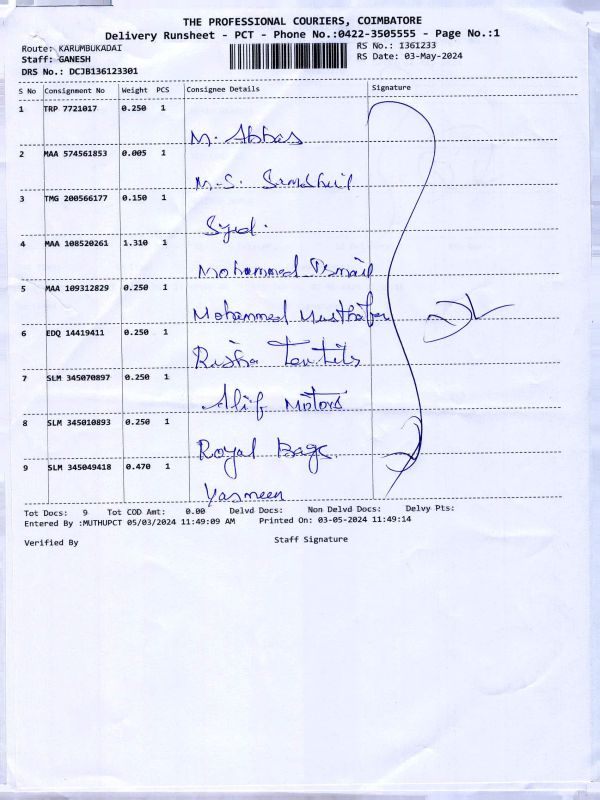 THE PROFESSIONAL COURIERS, COIMBATORE
Delivery Runsheet - PCT - Phone No.:0422-3505555 - Page No.:1
Route: KARUMBUKADAI RS No.: 1361233
Staff: GANESH RS Date: 03-May-2024
DRS No.: DCJB136123301
S No Consignment No Weight PCS Consignee Details Signature
1 TRP 7721017 0.250 1
M. Abbas
2 MAA 574561853 0.005 1
M.S.
3 TMG 200566177 0.150 1
Syed.
4 MAA 108520261 1.310 1
Mohammed Ismail
5 MAA 109312829 0.250 1
Mohammed Musthafa
6 EDQ 14419411 0.250 1
Risha
7 SLM 345070897 0.250 1
Alif Motors
8 SLM 345010893 0.250 1
Royal Bags.
9 SLM 345049418 0.470 1
Yasmeen
Tot Docs: 9 Tot COD Amt: 0.00 Delvd Docs: Non Delvd Docs: Delvy Pts:
Entered By :MUTHUPCT 05/03/2024 11:49:09 AM Printed On: 03-05-2024 11:49:14
Verified By Staff Signature